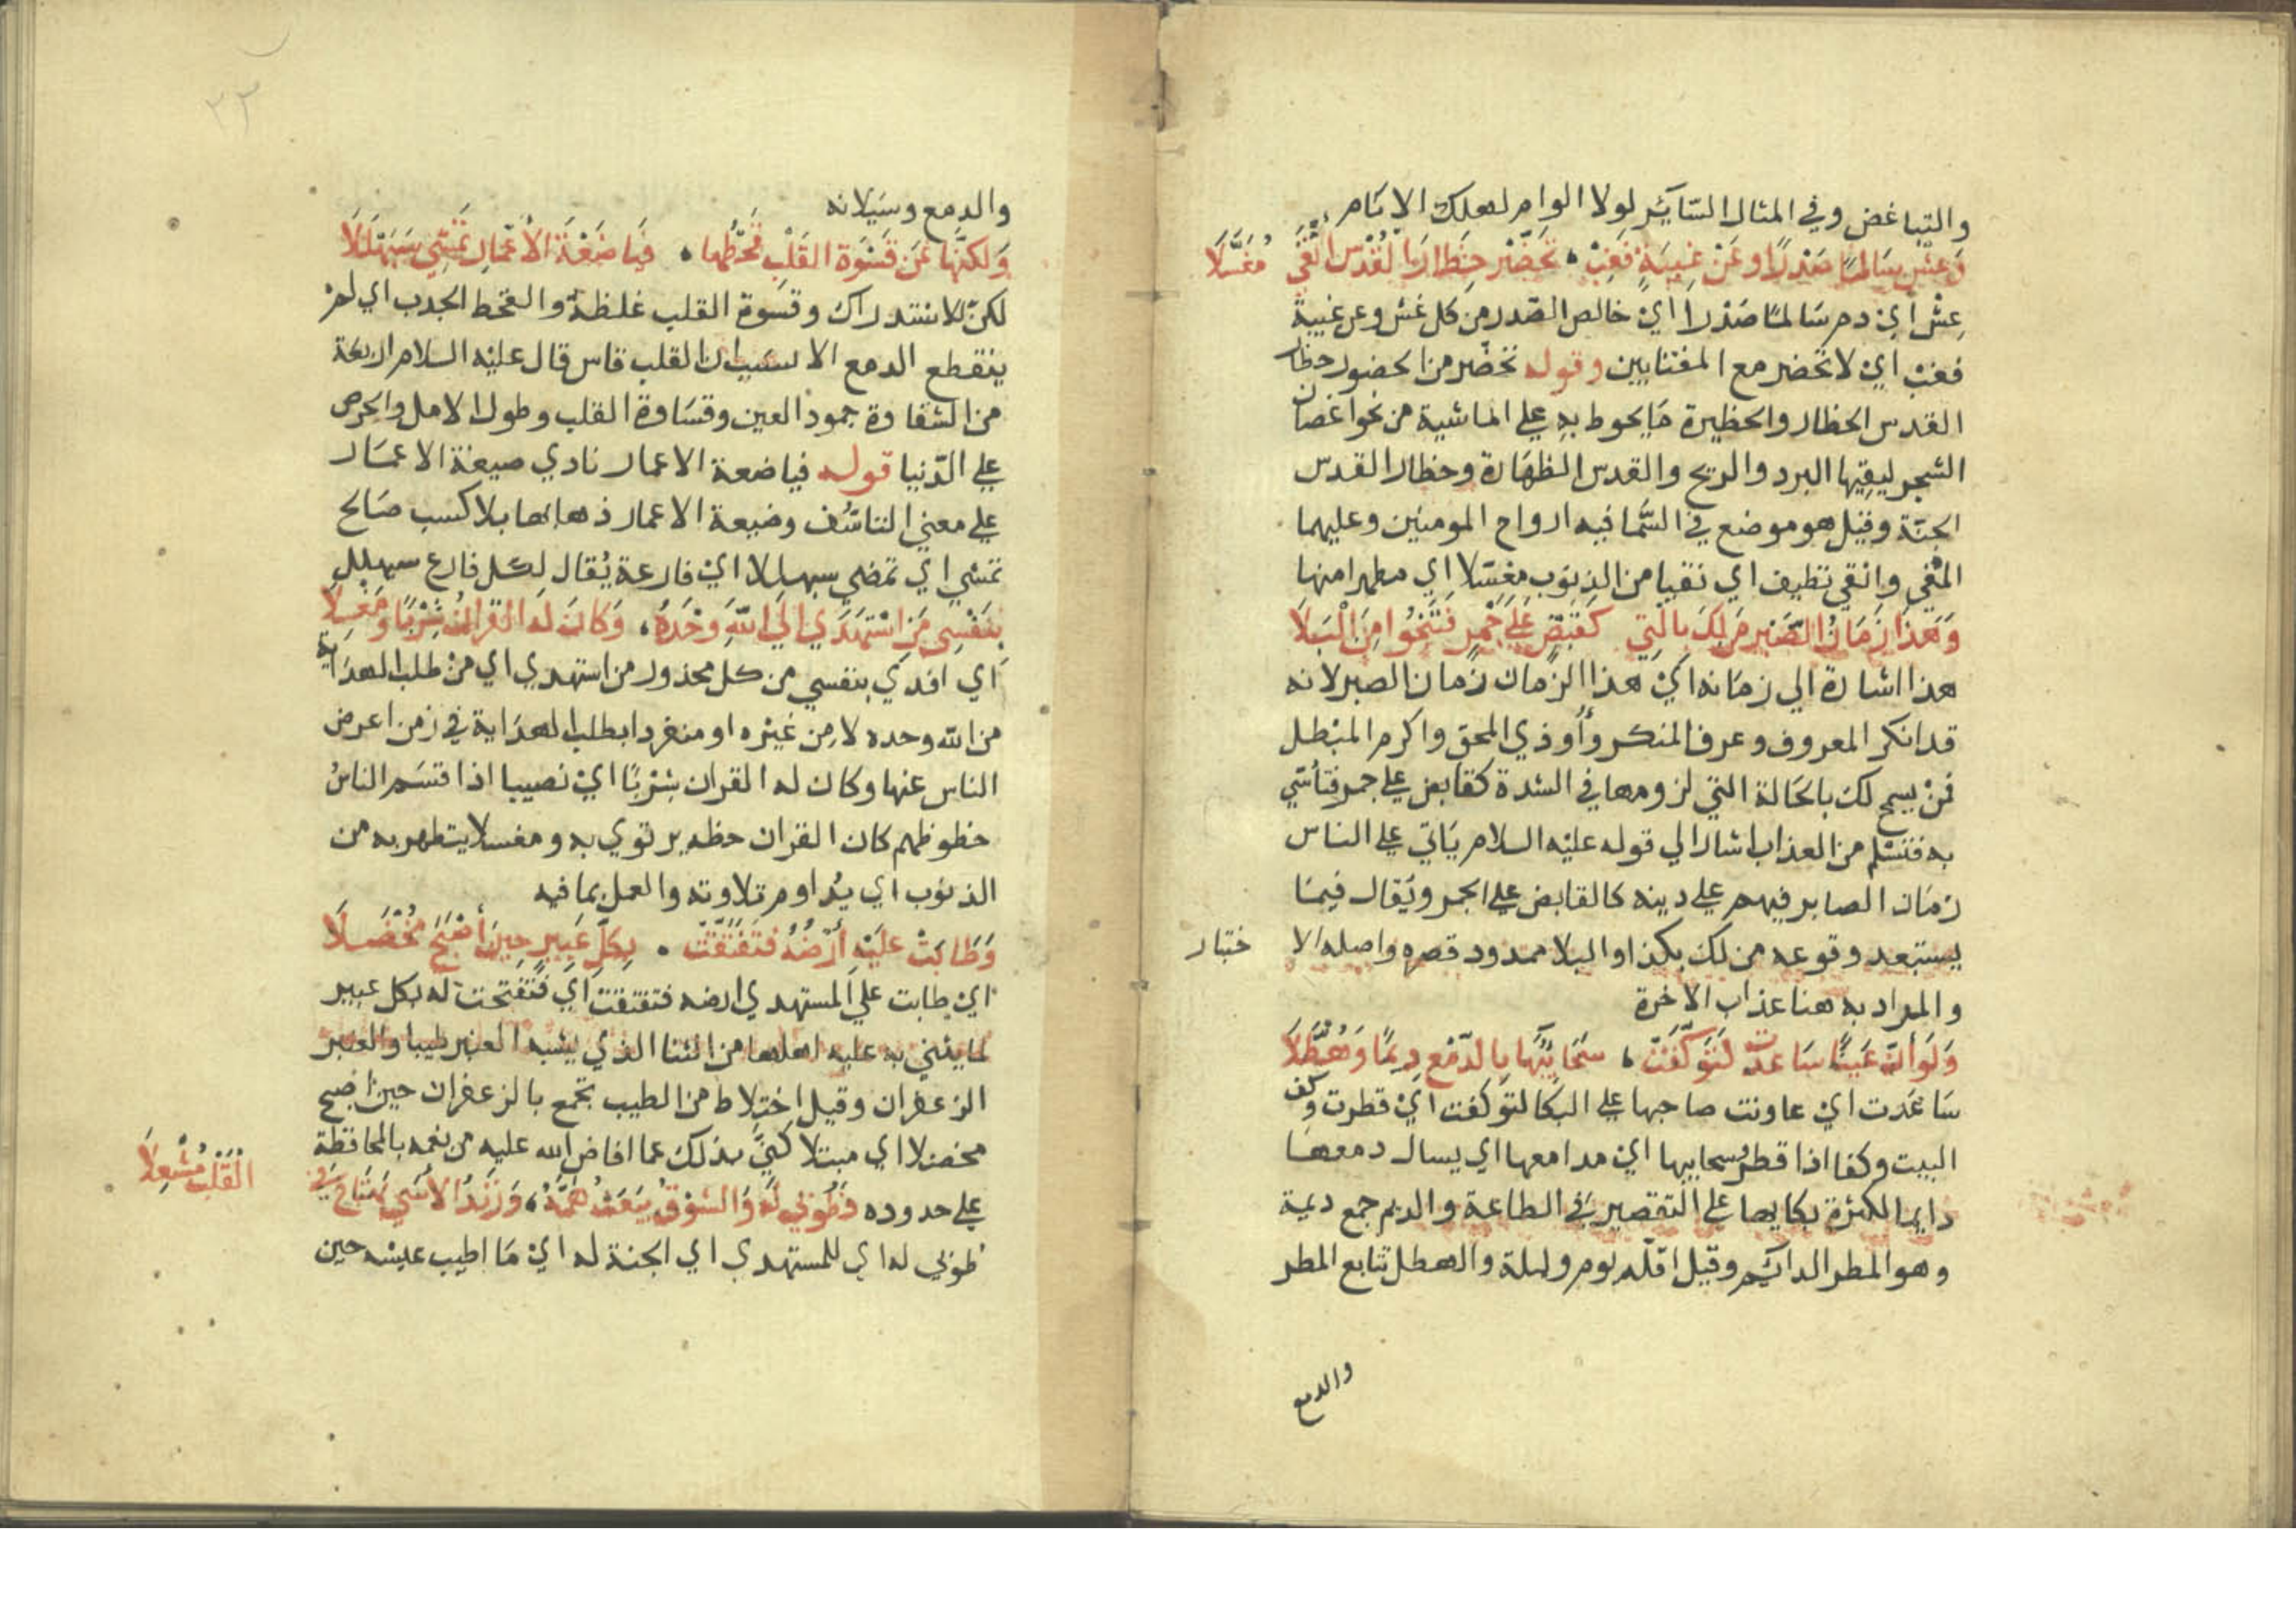 والتباغض وفي المثال السّاير لولا الوام لهلك الانام
وَعِشْ سَالمًا صَدْرًا وعَنْ غِيبَةٍ فَغِبْ ، تُحَضَّرْ حِظَارَ القُدْسِ أنْقَى مُغَسَّلَا
عِشْ ايْ دم سَالمًا صَدْرا ايْ خالص الصّدر من كل غش وعن غيبة
فغبْ ايْ لا تحضر مع المغتابين وقوله تحضّر من الحضور حظار
القدس الحظار والحظيرة مَا يحوط به علي الماشية من نحو اغصان
الشجر ليقيها البرد والريح والقدس الطهَارة وحظار القدس
الجنّة وقيل هو موضع في السَّما فيه ارواح المومنين وعليهما
المعْني وانقي نظيف اي نقيا من الذنوب مغسّلا اي مطهرا منها
وَهَذَا زَمَانُ الصَّبْرِ مَن لكَ بالَّتِي كَقَبْضٍ عَلَي جَمْرٍ فَتَنْجُوا مِنَ الْبَلَا
هذا اشارة الي زمَانه ايْ هذا الزمان زمان الصبر لانه
قد انكر المعروف وعرف المنكر وأُوذي المحق واكرم المبْطل
فمنْ يسمح لك بالحَالة التي لزومها في الشدة كقابض علي جمر فتأسّي
به فتسْلم من العذاب اشار الي قوله عليْه السلام يَاتي علي الناس
زمَان الصابر فيهم علي دينه كالقابض علي الجمر ويُقال فيمَا
يستبعد وقوعه من لك بكذا والبلا ممدود قصره واصله الا ختبار
والمراد به هنا عذاب الاخرة
وَلَو أنّ عَيْنًا سَاعدَتْ لتَوَكَّفَتْ ، سَحَائبُهَا بِالدَّمْعِ دِيمًا وَهُطَّلَا
سَاعَدت ايْ عاونت صاحبها علي البكا لتوكفت ايْ قطرت وكف
البيت وكفا اذا قطر وسحايبها ايْ مدامعها اي يسال دمعهَا
دايما لكثرة بكايها علي التقصير في الطاعة والديم جمع ديمة
وهو المطر الدائم وقيل اقله يوم وليلة والهطل تتابع المطر
والدمع
٣٢
والدمع وسَيَلانه
وَلكنَّها عَن قَسْوَة القَلْبِ قَحْطُها ، فَيَا ضَيْعَةَ الأعْمَارِ تَمْشِي سَبَهْلَلَا
لكنّ للاستدراك وقسْوة القلب غلظة والقحط الجدب اي لم
ينقطع الدمع الا لسبب ان القلب قاس قال عليْه السلام اربعة
من الشقاوة جمود العين وقسَاوة القلب وطول الامل والحرص
علي الدّنيا قوله فيا ضعة الاعمار نادي ضيعة الاعمَار
علي معني التاسّف وضيعة الاعمار ذهابها بلا كسب صَالح
تمشي اي تمضي سبهللا ايْ فارغة يُقال لكل فارغ سبهلل
بِنَفْسِي مَن اسْتَهْدَي الَي اللهِ وَحْدَهُ ، وَكَانَ لَهُ القُرانُ شِرْبًا ومَغْسِلَا
اي افدي بنفسي من كل محذور من استهدي اي من طلب الهدَاية
من الله وحده لا من غيْره او منفردا بطلب الهدَاية في زمن اعرض
الناس عنها وكان له القران شرْبًا ايْ نصيبا اذا قتسَم الناسُ
حظوظهم كان القران حظه يرتوي به ومغسلا يتطهر به من
الذنوب اي يُداوم تلاوته والعمل بما فيه
وَطَابَتْ عَلَيْهِ أرْضُهُ فتَفَتَّقَتْ ، بِكلِّ عَبِيرٍ حِينَ أصْبَحَ مُخْضَلَا
ايْ طابت علي المستهدي ارضه فتفتقت اي فتفتحت له بكل عبير
لما يثني به عليه اهلها من الثنا الذي يشبه العنبر طيبا والعنبر
الزعفران وقيل اختلاط من الطيب تجمع بالزعفران حين اصبح
مخضلا اي مبتلا كنيَّ بذلك عما افاض الله عليه من نعمه بالمحافظة
علي حدوده فَطُوبَي لَهُ وَالشوْقُ يَبْعَثُ هَمَّهُ ، وَزَنْدُ الأسَي يَهْتَاجُ في القَلْبِ مُشْعِلَا
طوبي له اي للمستهدي اي الجنة له ايْ مَا اطيب عيشه حين